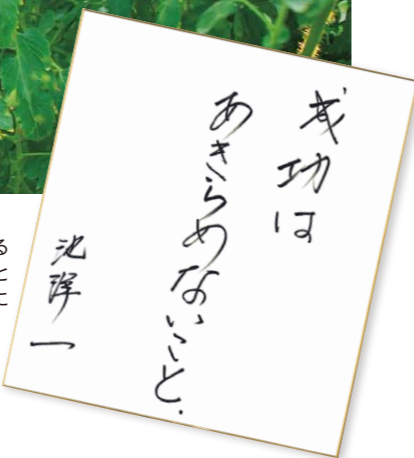 成功は
あきらめないこと.
池洋一
る
と
に